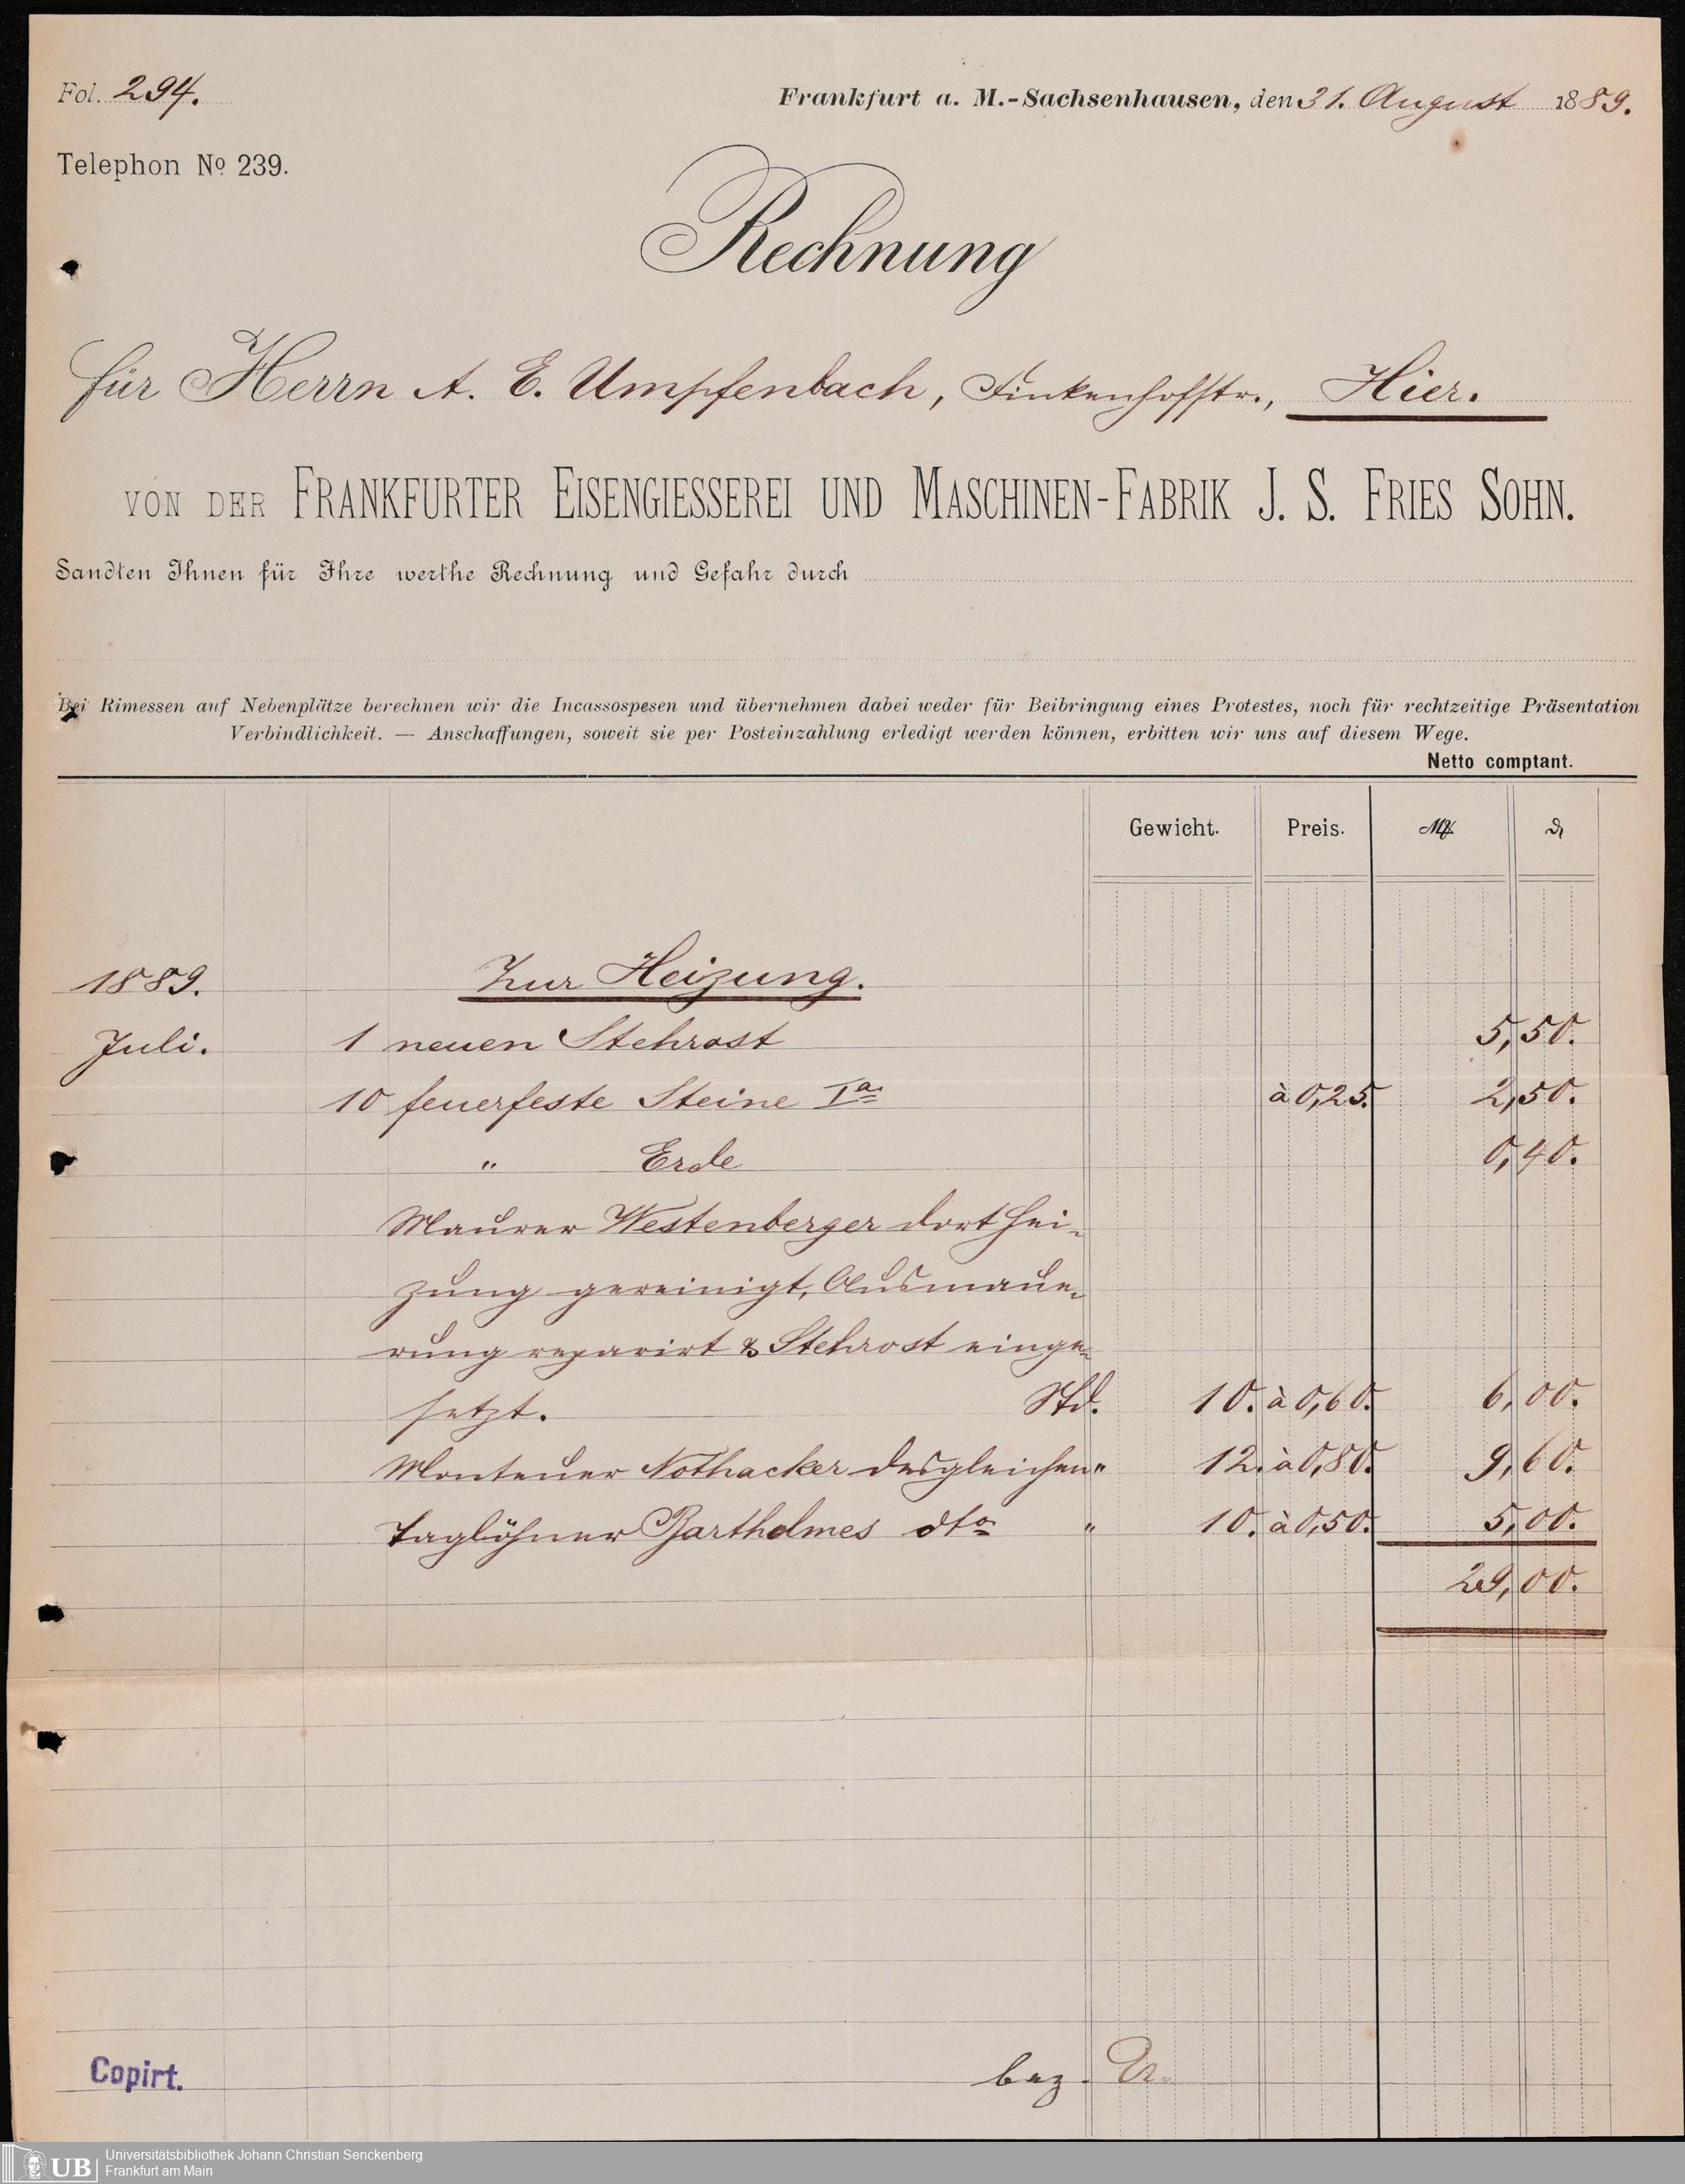 Fol. 294.
Frankfurt a. M.-Sachsenhausen, den 31. August 1889.
Telephon No 239.
Rechnung
für Herrn A. E. Umpfenbach, Finkenhofstr., Hier.
VON DER FRANKFURTER EISENGIESSEREI UND MASCHINEN-FABRIK J. S. FRIES SOHN.
Sandten Ihnen für Ihre werthe Rechnung und Gefahr durch
Bei Rimessen auf Nebenplätze berechnen wir die Incassospesen und übernehmen dabei weder für Beibringung eines Protestes, noch für rechtzeitige Präsentation
Verbindlichkeit. — Anschaffungen, soweit sie per Posteinzahlung erledigt werden können, erbitten wir uns auf diesem Wege.
Netto comptant.
Gewicht. Preis. M ₰
1889. Zur Heizung.
Juli. 1 neuen Stehrost 5,50.
10 feuerfeste Steine Ia à 0,25. 2,50.
" Erde 0,40.
Maurer Westenberger dort Hei-
zung gereinigt, Ausmaue-
rung reparirt & Stehrost einge-
setzt. Std. 10. à 0,60. 6,00.
Monteuer Nothacker desgleichen " 12. à 0,80. 9,60.
Taglöhner Bartholmes dto " 10. à 0,50. 5,00.
29,00.
Copirt.
bez.
UB
Universitätsbibliothek Johann Christian Senckenberg
Frankfurt am Main